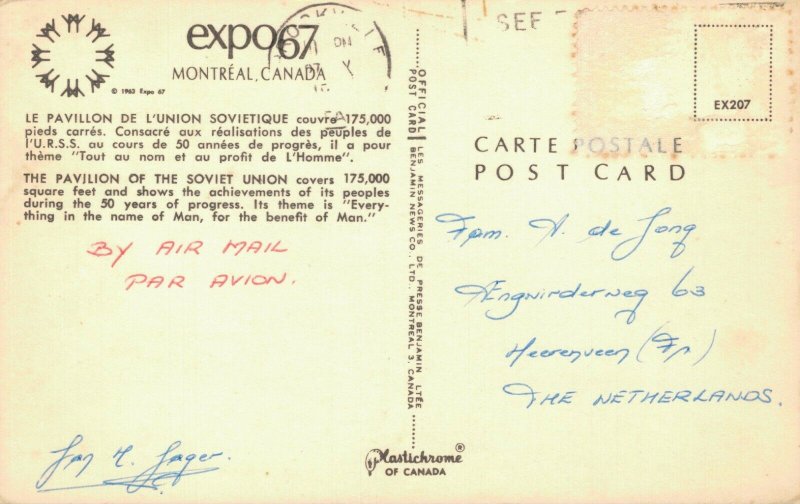 expo67
MONTRÉAL, CANADA
© 1963 Expo 67
LE PAVILLON DE L'UNION SOVIETIQUE couvre 175,000
pieds carrés. Consacré aux réalisations des peuples de
l'U.R.S.S. au cours de 50 années de progrès, il a pour
thème "Tout au nom et au profit de L'Homme".
THE PAVILION OF THE SOVIET UNION covers 175,000
square feet and shows the achievements of its peoples
during the 50 years of progress. Its theme is "Every-
thing in the name of Man, for the benefit of Man."
BY AIR MAIL
PAR AVION.
OFFICIAL LES MESSAGERIES DE PRESSE BENJAMIN LTÉE
POST CARD BENJAMIN NEWS CO., LTD., MONTREAL 3, CANADA
Plastichrome®
OF CANADA
SEE
EX207
CARTE POSTALE
POST CARD
Fam. A. de Jong
Ængwirderweg 63
Heerenveen (Fr)
THE NETHERLANDS.